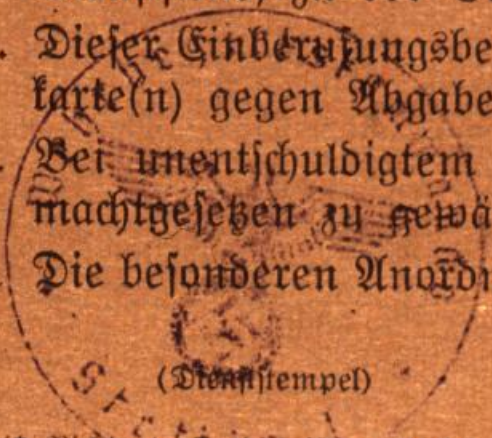 . Dieser Einberufungsbe
karte(n) gegen Abgabe
. Bei unentschuldigtem
machtgesetzen zu gewä
Die besonderen Anordn
(Dienststempel)